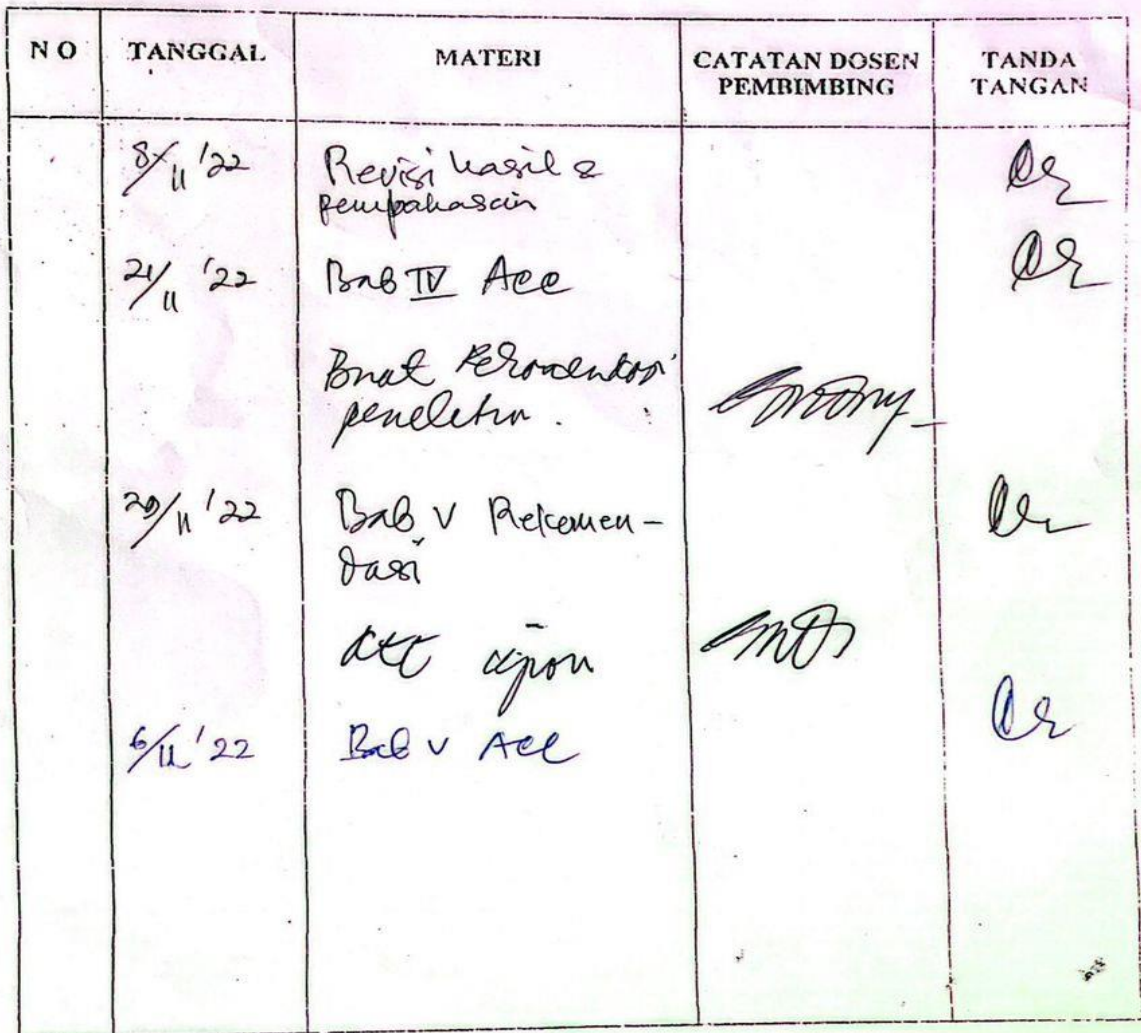 NO TANGGAL MATERI CATATAN DOSEN PEMBIMBING TANDA TANGAN
8/11 '22 Revisi hasil &
pembahasan
21/11 '22 Bab IV Acc
Buat Rekomendasi
penelitian.
29/11 '22 Bab V Rekomen-
dasi
acc ujian
6/12 '22 Bab V Acc